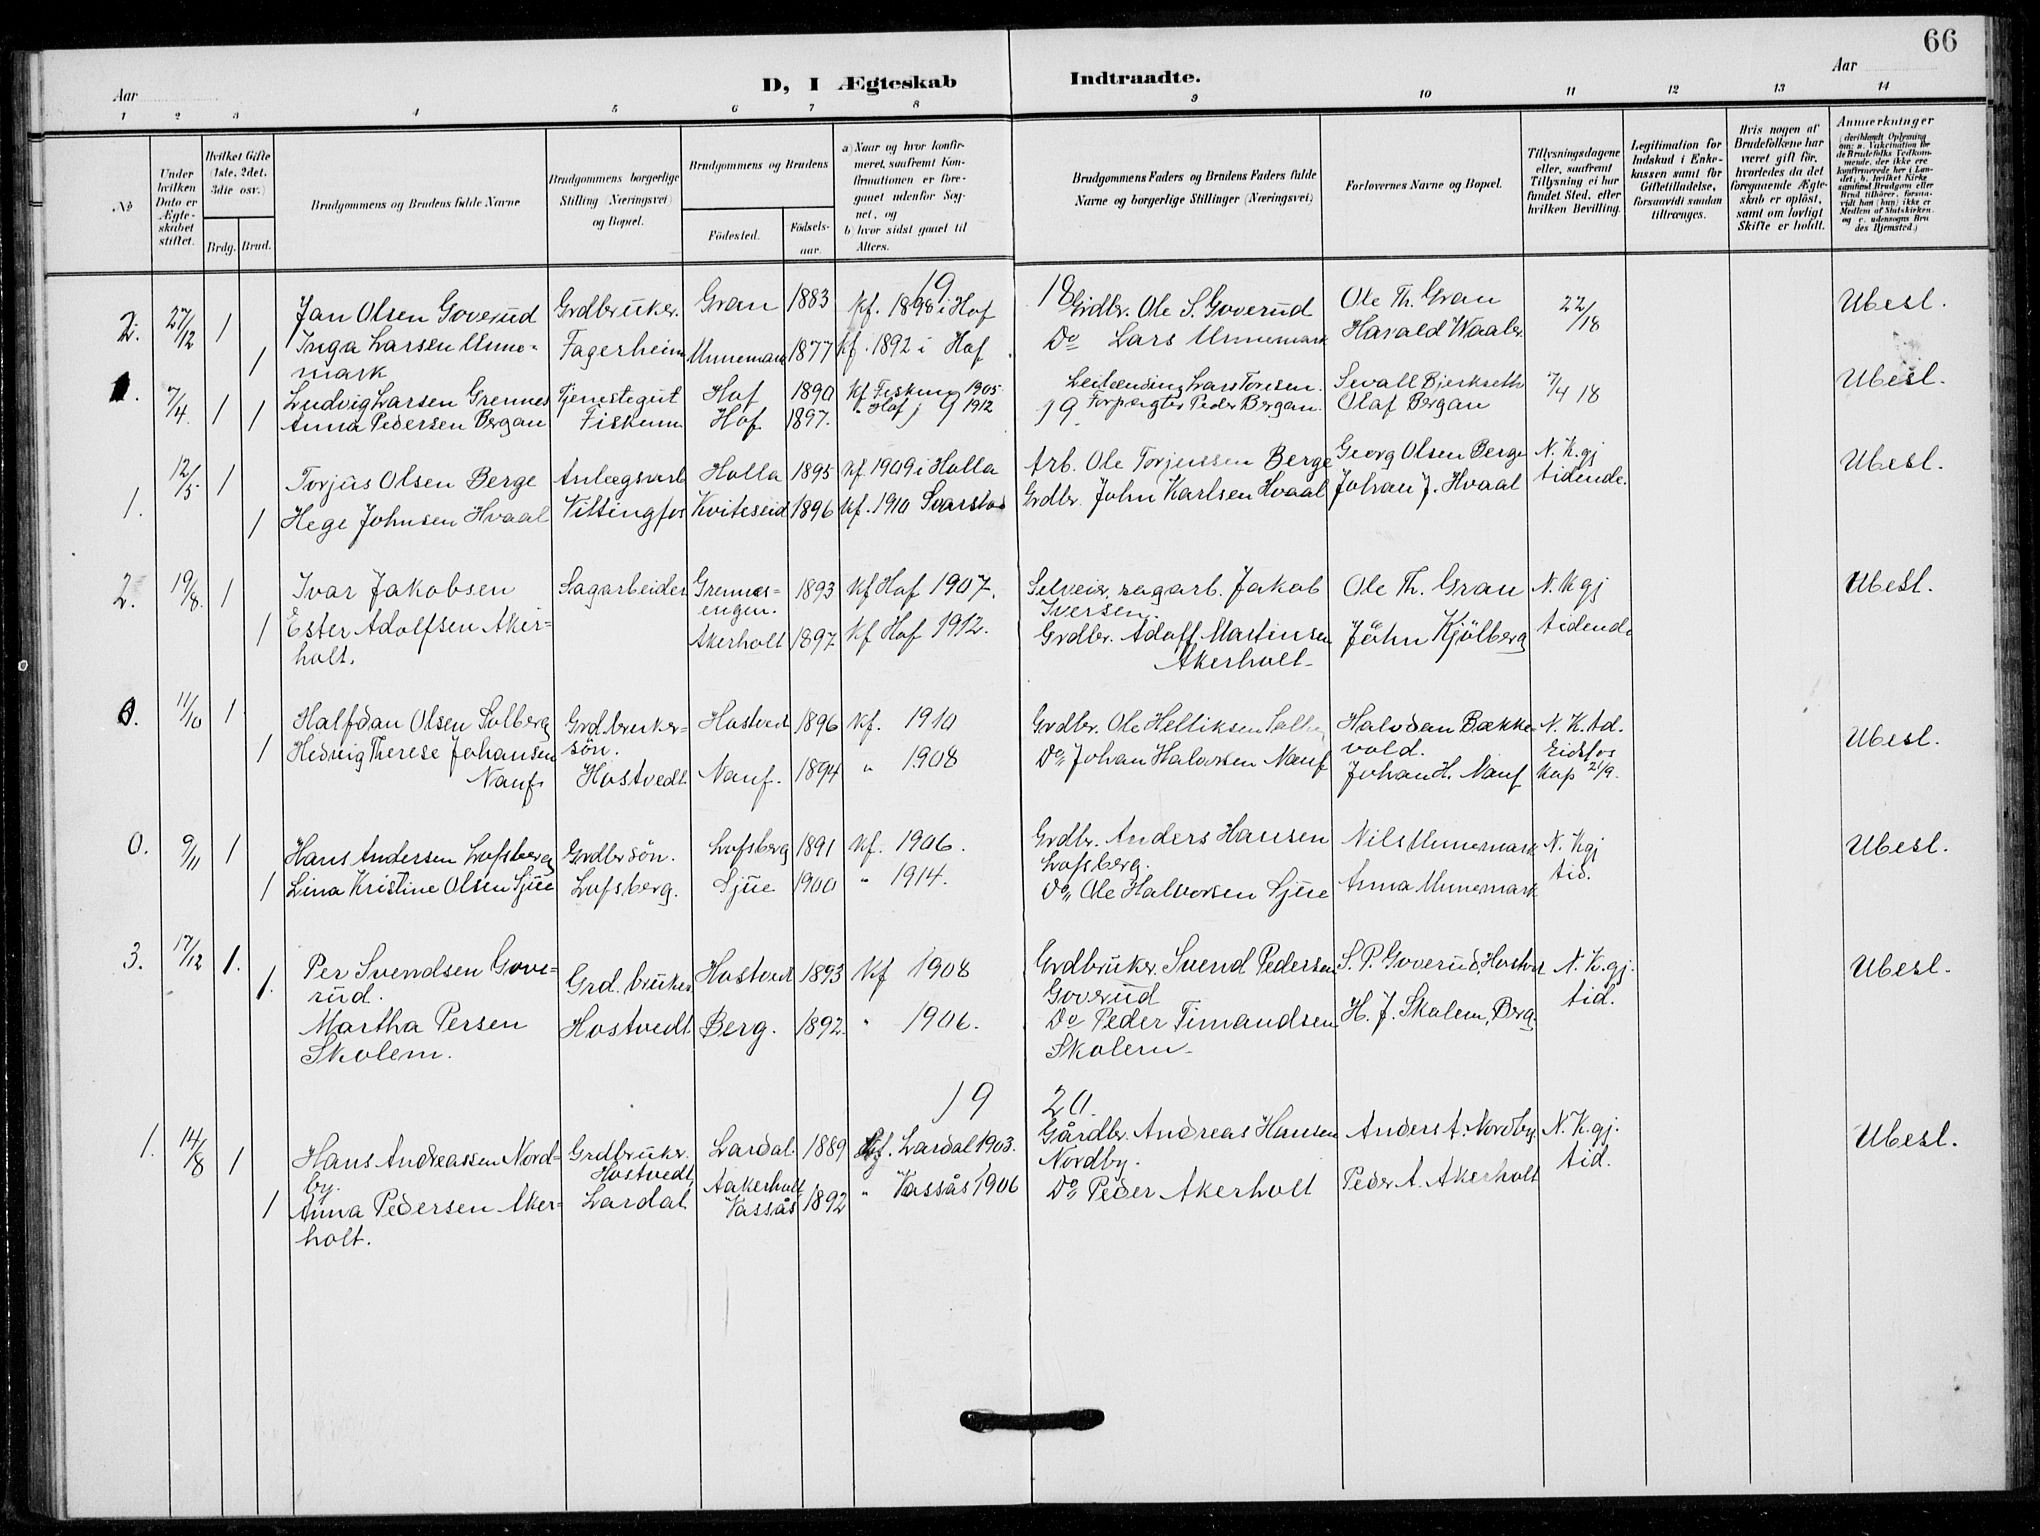 66
Aar
D, I Ægteskab
Indtraadte.
Aar
1 2 3 4 5 6 7 8 9 10 11 12 13 14
No
Under hvilken Dato er Ægteskabet stiftet.
Hvilket Gifte (1ste, 2det, 3die osv.)
Brdg. Brud.
Brudgommens og Brudens fulde Navne
Brudgommens borgerlige Stilling (Næringsvei) og Bopæl.
Brudgommens og Brudens
Födested. Födselsaar.
a) Naar og hvor konfirmeret, saafremt Konfirmationen er foregaaet udenfor Sognet, og
b) hvor sidst gaaet til Alters.
Brudgommens Faders og Brudens Faders fulde Navne og borgerlige Stillinger (Næringsvei)
Forlovernes Navne og Bopæl.
Tillysningsdagene eller, saafremt Tillysning ei har fundet Sted, efter hvilken Bevilling.
Legitimation for Indskud i Enkekassen samt for Giftetilladelse, forsaavidt saadan tiltrænges.
Hvis nogen af Brudefolkene har været gift för, hvorledes da det foregaaende Ægteskab er oplöst, samt om lovligt Skifte er holdt.
Anmærkninger
(deriblandt Oplysning om: a. Vakcination för de Brudefolks Vedkommende, der ikke ere konfirmerede her i Landet; b. hvilket Kirkesamfund Brudgom eller Brud tilhörer, forsaavidt han (hun) ikke er Medlem af Statskirken, og c. udensogns Brudes Hjemsted.)
19 18
2. 27/12 1 Jan Olsen Goverud Grdbruker. Gran 1883 kf. 1898 i Hof Grdbr. Ole S. Goverud Ole Th. Gran 22/18 Ubesl.
1 Inga Larsen Unnemark Fagerheim Unnemark 1877 kf. 1892 i Hof Do Lars Unnemark Harald Waaler
1. 7/4. 1 Ludvig Larsen Grennes Tjenestegut Hof 1890 kf Fiskum 1905 Leilending Lars Toresen. Sevall Bjerkseth 7/4 18 Ubesl.
1 Anna Pedersen Bergan Fiskum Hof 1897. " Hof 1912 Forpagter Peder Bergan. Olaf Bergan
19 19.
1. 12/5 1 Torjus Olsen Berge Anlægsarb Holla 1895 kf 1909 i Holla Arb. Ole Torjussen Berge Georg Olsen Berge N. K. gj tidende. Ubesl.
1 Hege Johnsen Hvaal Vittingfos Kviteseid 1896 kf. 1910 Svarstad Grdbr. John Karlsen Hvaal Johan J. Hvaal
2. 19/8. 1 Ivar Jakobsen Sagarbeider Grennesengen. 1893 kf Hof 1907. Selveier, sagarb. Jakob Iversen. Ole Th. Gran N. K gj tidende Ubesl.
1 Ester Adolfsen Akerholt. Akerholt 1897 kf Hof 1912. Grdbr. Adolf Martinsen Akerholt John Kjölberg
0. 11/10 1 Halfdan Olsen Solberg Grdbrukersön. Hostvedt 1896 kf. 1910 Grdbr. Ole Helliksen Halvdan Bækkevold. N. K. td. Eidsfos Kap 21/9. Ubesl.
1 Hedvig Therese Johansen Nauf Hostvedt Nauf. 1894 " 1908 Do Johan Halvorsen Nauf Johan H. Nauf
0. 9/11 1 Hans Andersen Lofsberg Grdbrsön. Lofsberg 1891 kf. 1906. Grdbr. Anders Hansen Lofsberg. Nils Unnemark N. K gj tid. Ubesl.
1 Lina Kristine Olsen Sjue Lofsberg. Sjue 1900 " 1914. Do Ole Halvorsen Sjue Anna Unnemark
3. 17/12 1. Per Svendsen Goverud. Grd. bruker Hostvedt 1893 kf 1908 Grdbruker. Svend Pedersen Goverud S. P. Goverud, Hostvet N. K. gj. tid. Ubesl.
1. Martha Persen Skolem. Hostvedt Berg. 1892. " 1906. Do Peder Timandsen Skolem H. J. Skolem, Berg
19 20.
1. 14/8 1 Hans Andreassen Nordby. Grdbruker. Hostvedt, Lardal Lardal. 1889 kf. Lardal 1903. Gårdbr. Andreas Hansen Nordby. Anders A. Nordby N. K. gj. tid. Ubesl.
1 Anna Pedersen Akerholt. Aakerholt Vassås 1892 " Vassås 1906 Do Peder Akerholt Peder A. Akerholt